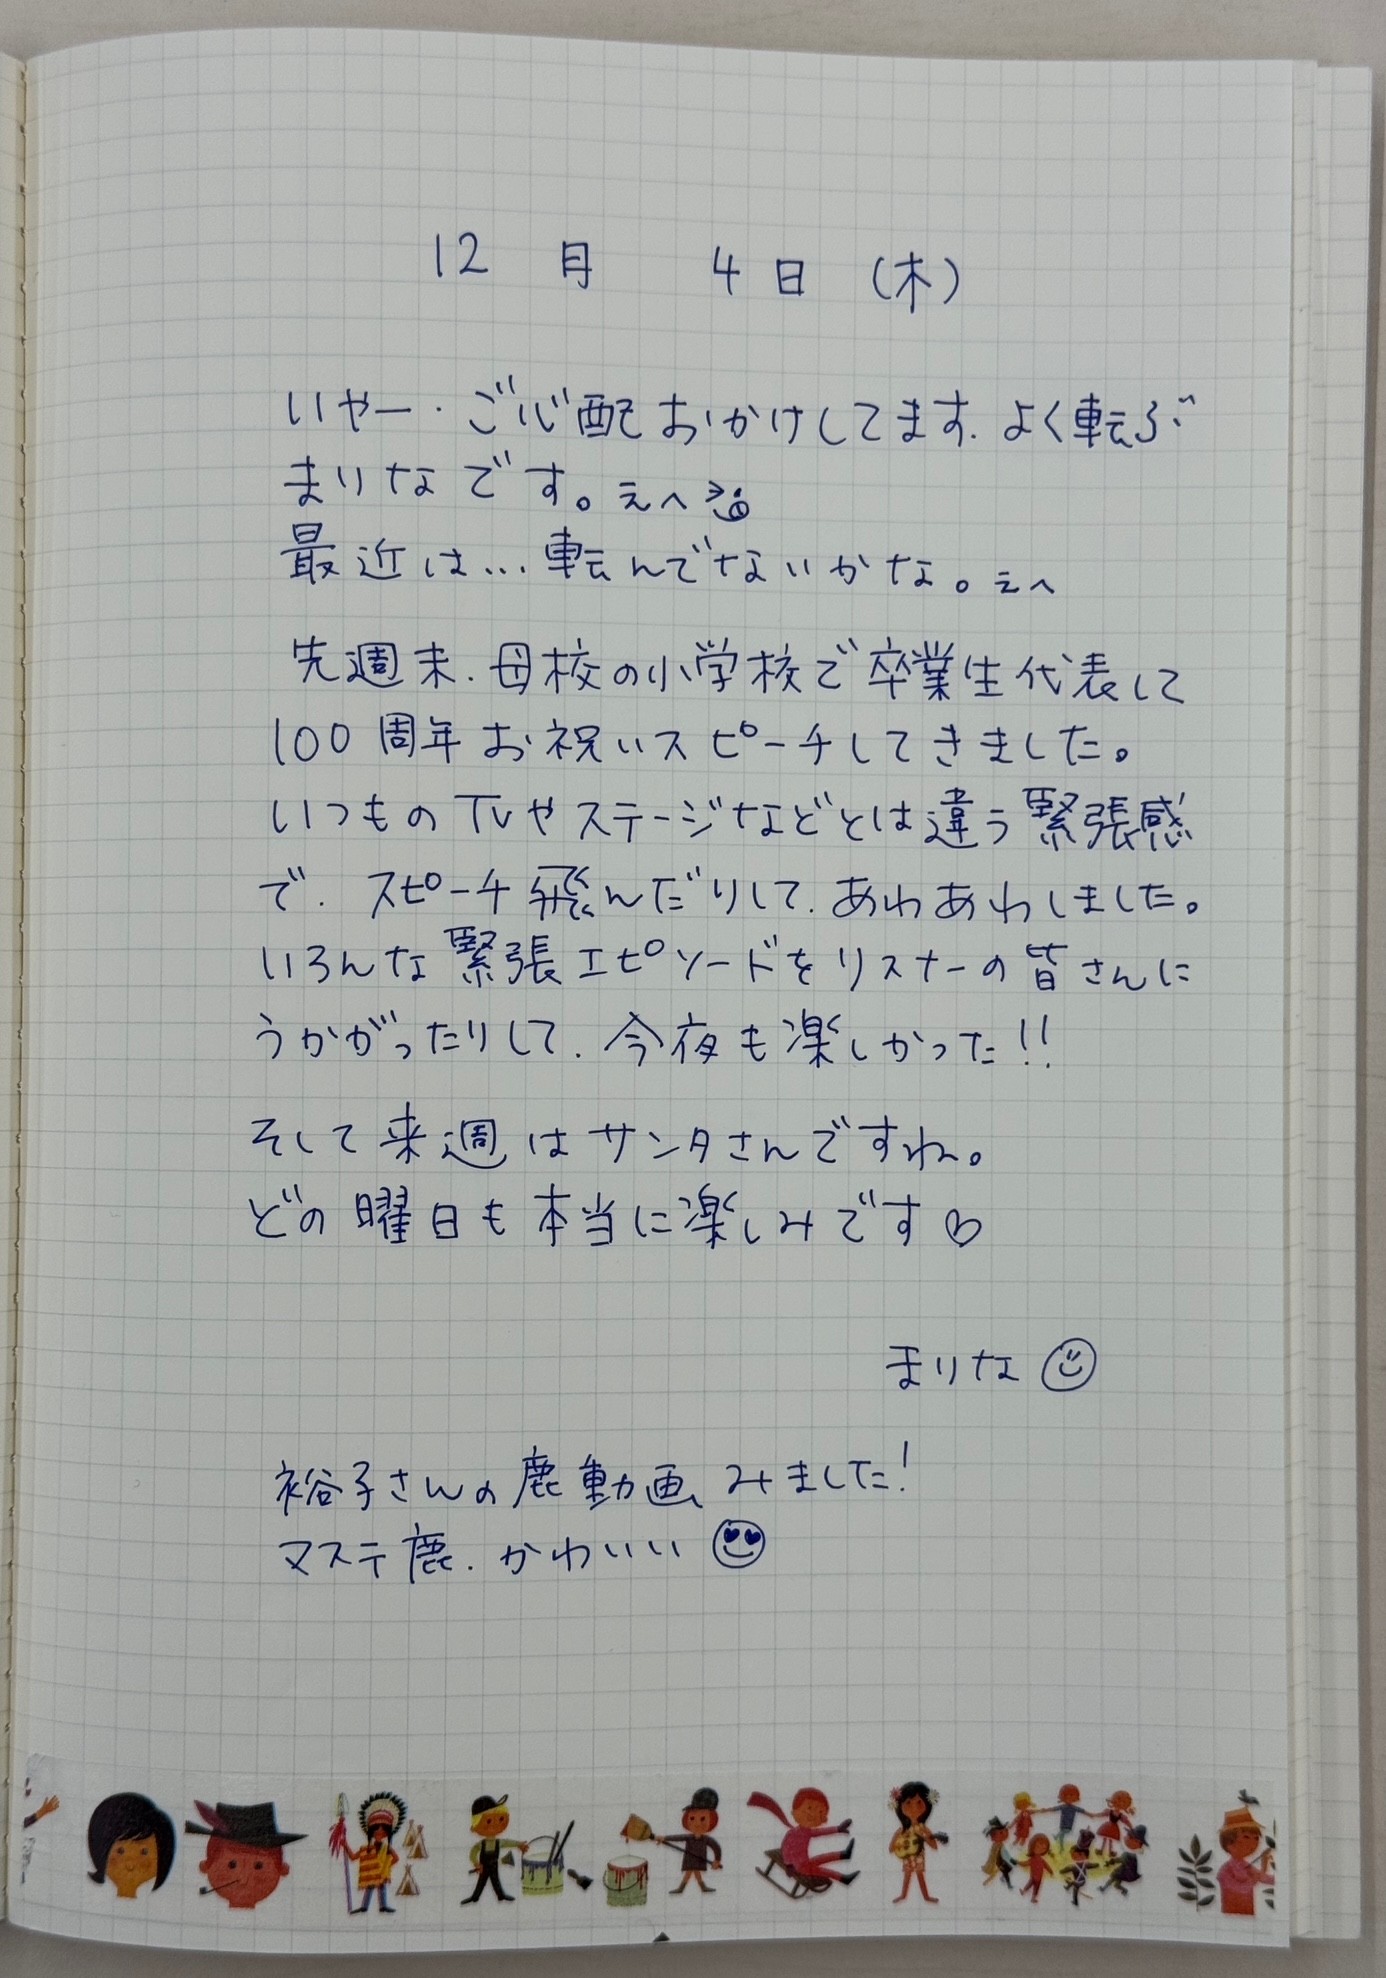 12月 4日 (木)
いやー.ご心配おかけしてます.よく転ぶ
まりなです。えへ
最近は...転んでないかな。えへ
先週末.母校の小学校で卒業生代表して
100周年お祝いスピーチしてきました。
いつものTVやステージなどとは違う緊張感
で.スピーチ飛んだりして.あわあわしました。
いろんな緊張エピソードをリスナーの皆さんに
うかがったりして.今夜も楽しかった!!
そして来週はサンタさんですね。
どの曜日も本当に楽しみです♡
まりな
裕子さんの鹿動画みました!
マステ鹿.かわいい